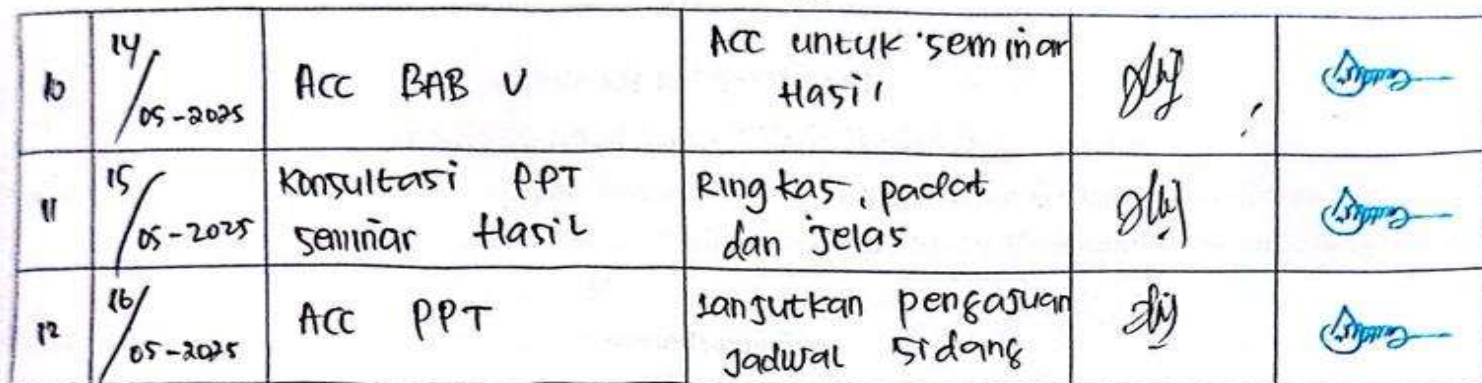 10
14/05-2025
Acc BAB V
Acc untuk seminar
Hasil
11
15/05-2025
Konsultasi PPT
seminar Hasil
Ringkas, padat
dan Jelas
12
16/05-2025
Acc PPT
Lanjutkan pengajuan
Jadwal sidang